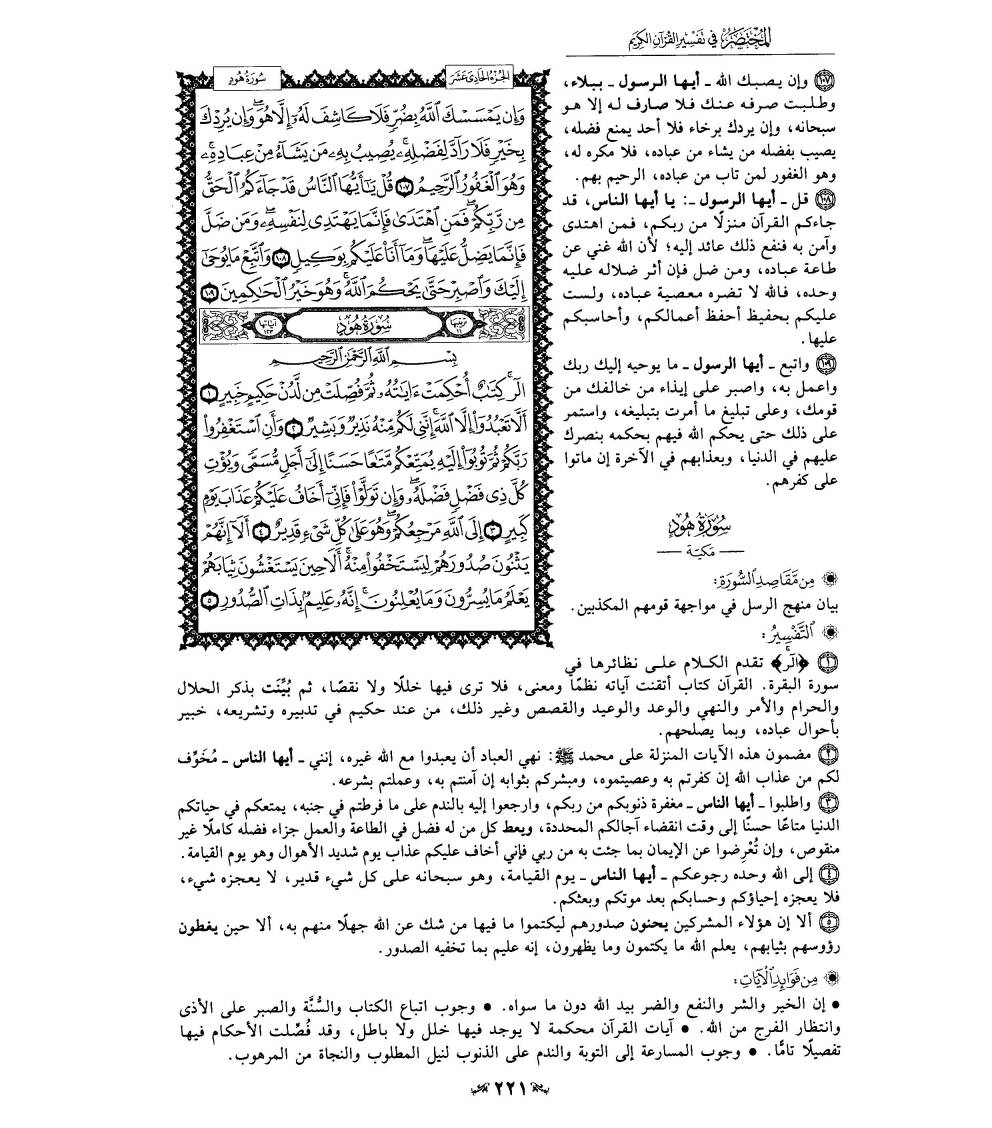 المختصر في تفسير القرآن الكريم
الجزء الحادي عشر
سورة هود
وَإِن يَمْسَسْكَ ٱللَّهُ بِضُرٍّ فَلَا كَاشِفَ لَهُۥٓ إِلَّا هُوَ ۖ وَإِن يُرِدْكَ
بِخَيْرٍ فَلَا رَآدَّ لِفَضْلِهِۦ ۚ يُصِيبُ بِهِۦ مَن يَشَآءُ مِنْ عِبَادِهِۦ ۚ
وَهُوَ ٱلْغَفُورُ ٱلرَّحِيمُ ١٠٧ قُلْ يَٰٓأَيُّهَا ٱلنَّاسُ قَدْ جَآءَكُمُ ٱلْحَقُّ
مِن رَّبِّكُمْ ۖ فَمَنِ ٱهْتَدَىٰ فَإِنَّمَا يَهْتَدِى لِنَفْسِهِۦ ۖ وَمَن ضَلَّ
فَإِنَّمَا يَضِلُّ عَلَيْهَا ۖ وَمَآ أَنَا۠ عَلَيْكُم بِوَكِيلٍ ١٠٨ وَٱتَّبِعْ مَا يُوحَىٰٓ
إِلَيْكَ وَٱصْبِرْ حَتَّىٰ يَحْكُمَ ٱللَّهُ ۚ وَهُوَ خَيْرُ ٱلْحَٰكِمِينَ ١٠٩
ترتيبها ١١ سُورَةُ هُودٍ آياتها ١٢٣
بِسْمِ ٱللَّهِ ٱلرَّحْمَٰنِ ٱلرَّحِيمِ
الٓر ۚ كِتَٰبٌ أُحْكِمَتْ ءَايَٰتُهُۥ ثُمَّ فُصِّلَتْ مِن لَّدُنْ حَكِيمٍ خَبِيرٍ ١
أَلَّا تَعْبُدُوٓا۟ إِلَّا ٱللَّهَ ۚ إِنَّنِى لَكُم مِّنْهُ نَذِيرٌ وَبَشِيرٌ ٢ وَأَنِ ٱسْتَغْفِرُوا۟
رَبَّكُمْ ثُمَّ تُوبُوٓا۟ إِلَيْهِ يُمَتِّعْكُم مَّتَٰعًا حَسَنًا إِلَىٰٓ أَجَلٍ مُّسَمًّى وَيُؤْتِ
كُلَّ ذِى فَضْلٍ فَضْلَهُۥ ۖ وَإِن تَوَلَّوْا۟ فَإِنِّىٓ أَخَافُ عَلَيْكُمْ عَذَابَ يَوْمٍ
كَبِيرٍ ٣ إِلَى ٱللَّهِ مَرْجِعُكُمْ ۖ وَهُوَ عَلَىٰ كُلِّ شَىْءٍ قَدِيرٌ ٤ أَلَآ إِنَّهُمْ
يَثْنُونَ صُدُورَهُمْ لِيَسْتَخْفُوا۟ مِنْهُ ۚ أَلَا حِينَ يَسْتَغْشُونَ ثِيَابَهُمْ
يَعْلَمُ مَا يُسِرُّونَ وَمَا يُعْلِنُونَ ۚ إِنَّهُۥ عَلِيمٌۢ بِذَاتِ ٱلصُّدُورِ ٥
١٠٧ وإن يصبك الله ـ أيها الرسول ـ ببلاء،
وطلبت صرفه عنك فلا صارف له إلا هو
سبحانه، وإن يردك برخاء فلا أحد يمنع فضله،
يصيب بفضله من يشاء من عباده، فلا مكره له،
وهو الغفور لمن تاب من عباده، الرحيم بهم.
١٠٨ قل ـ أيها الرسول ـ: يا أيها الناس، قد
جاءكم القرآن منزلًا من ربكم، فمن اهتدى
وآمن به فنفع ذلك عائد إليه؛ لأن الله غني عن
طاعة عباده، ومن ضل فإن أثر ضلاله عليه
وحده، فالله لا تضره معصية عباده، ولست
عليكم بحفيظ أحفظ أعمالكم، وأحاسبكم
عليها.
١٠٩ واتبع ـ أيها الرسول ـ ما يوحيه إليك ربك
واعمل به، واصبر على إيذاء من خالفك من
قومك، وعلى تبليغ ما أمرت بتبليغه، واستمر
على ذلك حتى يحكم الله فيهم بحكمه بنصرك
عليهم في الدنيا، وبعذابهم في الآخرة إن ماتوا
على كفرهم.
سُورَةُ هُودٍ
مكية
من مقاصد السورة:
بيان منهج الرسل في مواجهة قومهم المكذبين.
التفسير:
١ ﴿الٓر﴾ تقدم الكلام على نظائرها في
سورة البقرة. القرآن كتاب أتقنت آياته نظمًا ومعنى، فلا ترى فيها خللًا ولا نقصًا، ثم بُيِّنَت بذكر الحلال
والحرام والأمر والنهي والوعد والوعيد والقصص وغير ذلك، من عند حكيم في تدبيره وتشريعه، خبير
بأحوال عباده، وبما يصلحهم.
٢ مضمون هذه الآيات المنزلة على محمد ﷺ: نهي العباد أن يعبدوا مع الله غيره، إنني ـ أيها الناس ـ مُخَوِّف
لكم من عذاب الله إن كفرتم به وعصيتموه، ومبشركم بثوابه إن آمنتم به، وعملتم بشرعه.
٣ واطلبوا ـ أيها الناس ـ مغفرة ذنوبكم من ربكم، وارجعوا إليه بالندم على ما فرطتم في جنبه، يمتعكم في حياتكم
الدنيا متاعًا حسنًا إلى وقت انقضاء آجالكم المحددة، ويعط كل من له فضل في الطاعة والعمل جزاء فضله كاملًا غير
منقوص، وإن تُعْرِضوا عن الإيمان بما جئت به من ربي فإني أخاف عليكم عذاب يوم شديد الأهوال وهو يوم القيامة.
٤ إلى الله وحده رجوعكم ـ أيها الناس ـ يوم القيامة، وهو سبحانه على كل شيء قدير، لا يعجزه شيء،
فلا يعجزه إحياؤكم وحسابكم بعد موتكم وبعثكم.
٥ ألا إن هؤلاء المشركين يحنون صدورهم ليكتموا ما فيها من شك عن الله جهلًا منهم به، ألا حين يغطون
رؤوسهم بثيابهم، يعلم الله ما يكتمون وما يظهرون، إنه عليم بما تخفيه الصدور.
من فوايد الآيات:
• إن الخير والشر والنفع والضر بيد الله دون ما سواه. • وجوب اتباع الكتاب والسُّنَّة والصبر على الأذى
وانتظار الفرج من الله. • آيات القرآن محكمة لا يوجد فيها خلل ولا باطل، وقد فُصِّلت الأحكام فيها
تفصيلًا تامًّا. • وجوب المسارعة إلى التوبة والندم على الذنوب لنيل المطلوب والنجاة من المرهوب.
٢٢١